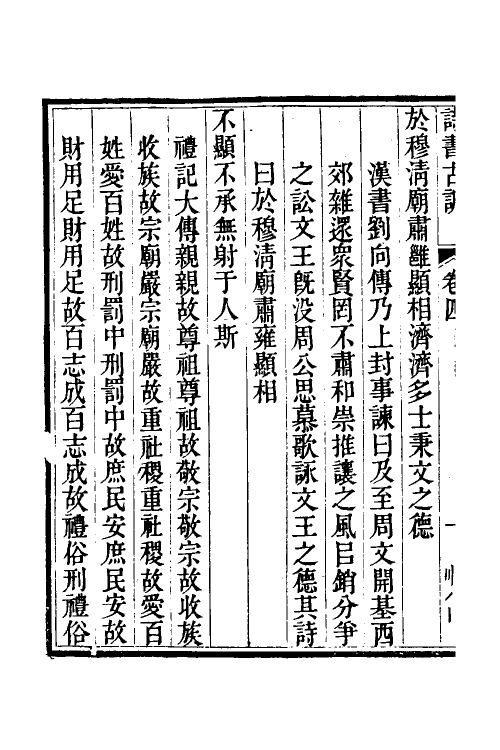 卷四
於穆清廟肅雝顯相濟濟多士秉文之德
漢書劉向傳乃上封事諫曰及至周文開基西
郊雜遝衆賢罔不肅和崇推讓之風㠯銷分爭
之訟文王旣没周公思慕歌詠文王之德其詩
曰於穆清廟肅雍顯相
不顯不承無射于人斯
禮記大傳親親故尊祖尊祖故敬宗敬宗故收族
收族故宗廟嚴宗廟嚴故重社稷重社稷故愛百
姓愛百姓故刑罰中刑罰中故庶民安庶民安故
財用足財用足故百志成百志成故禮俗刑禮俗